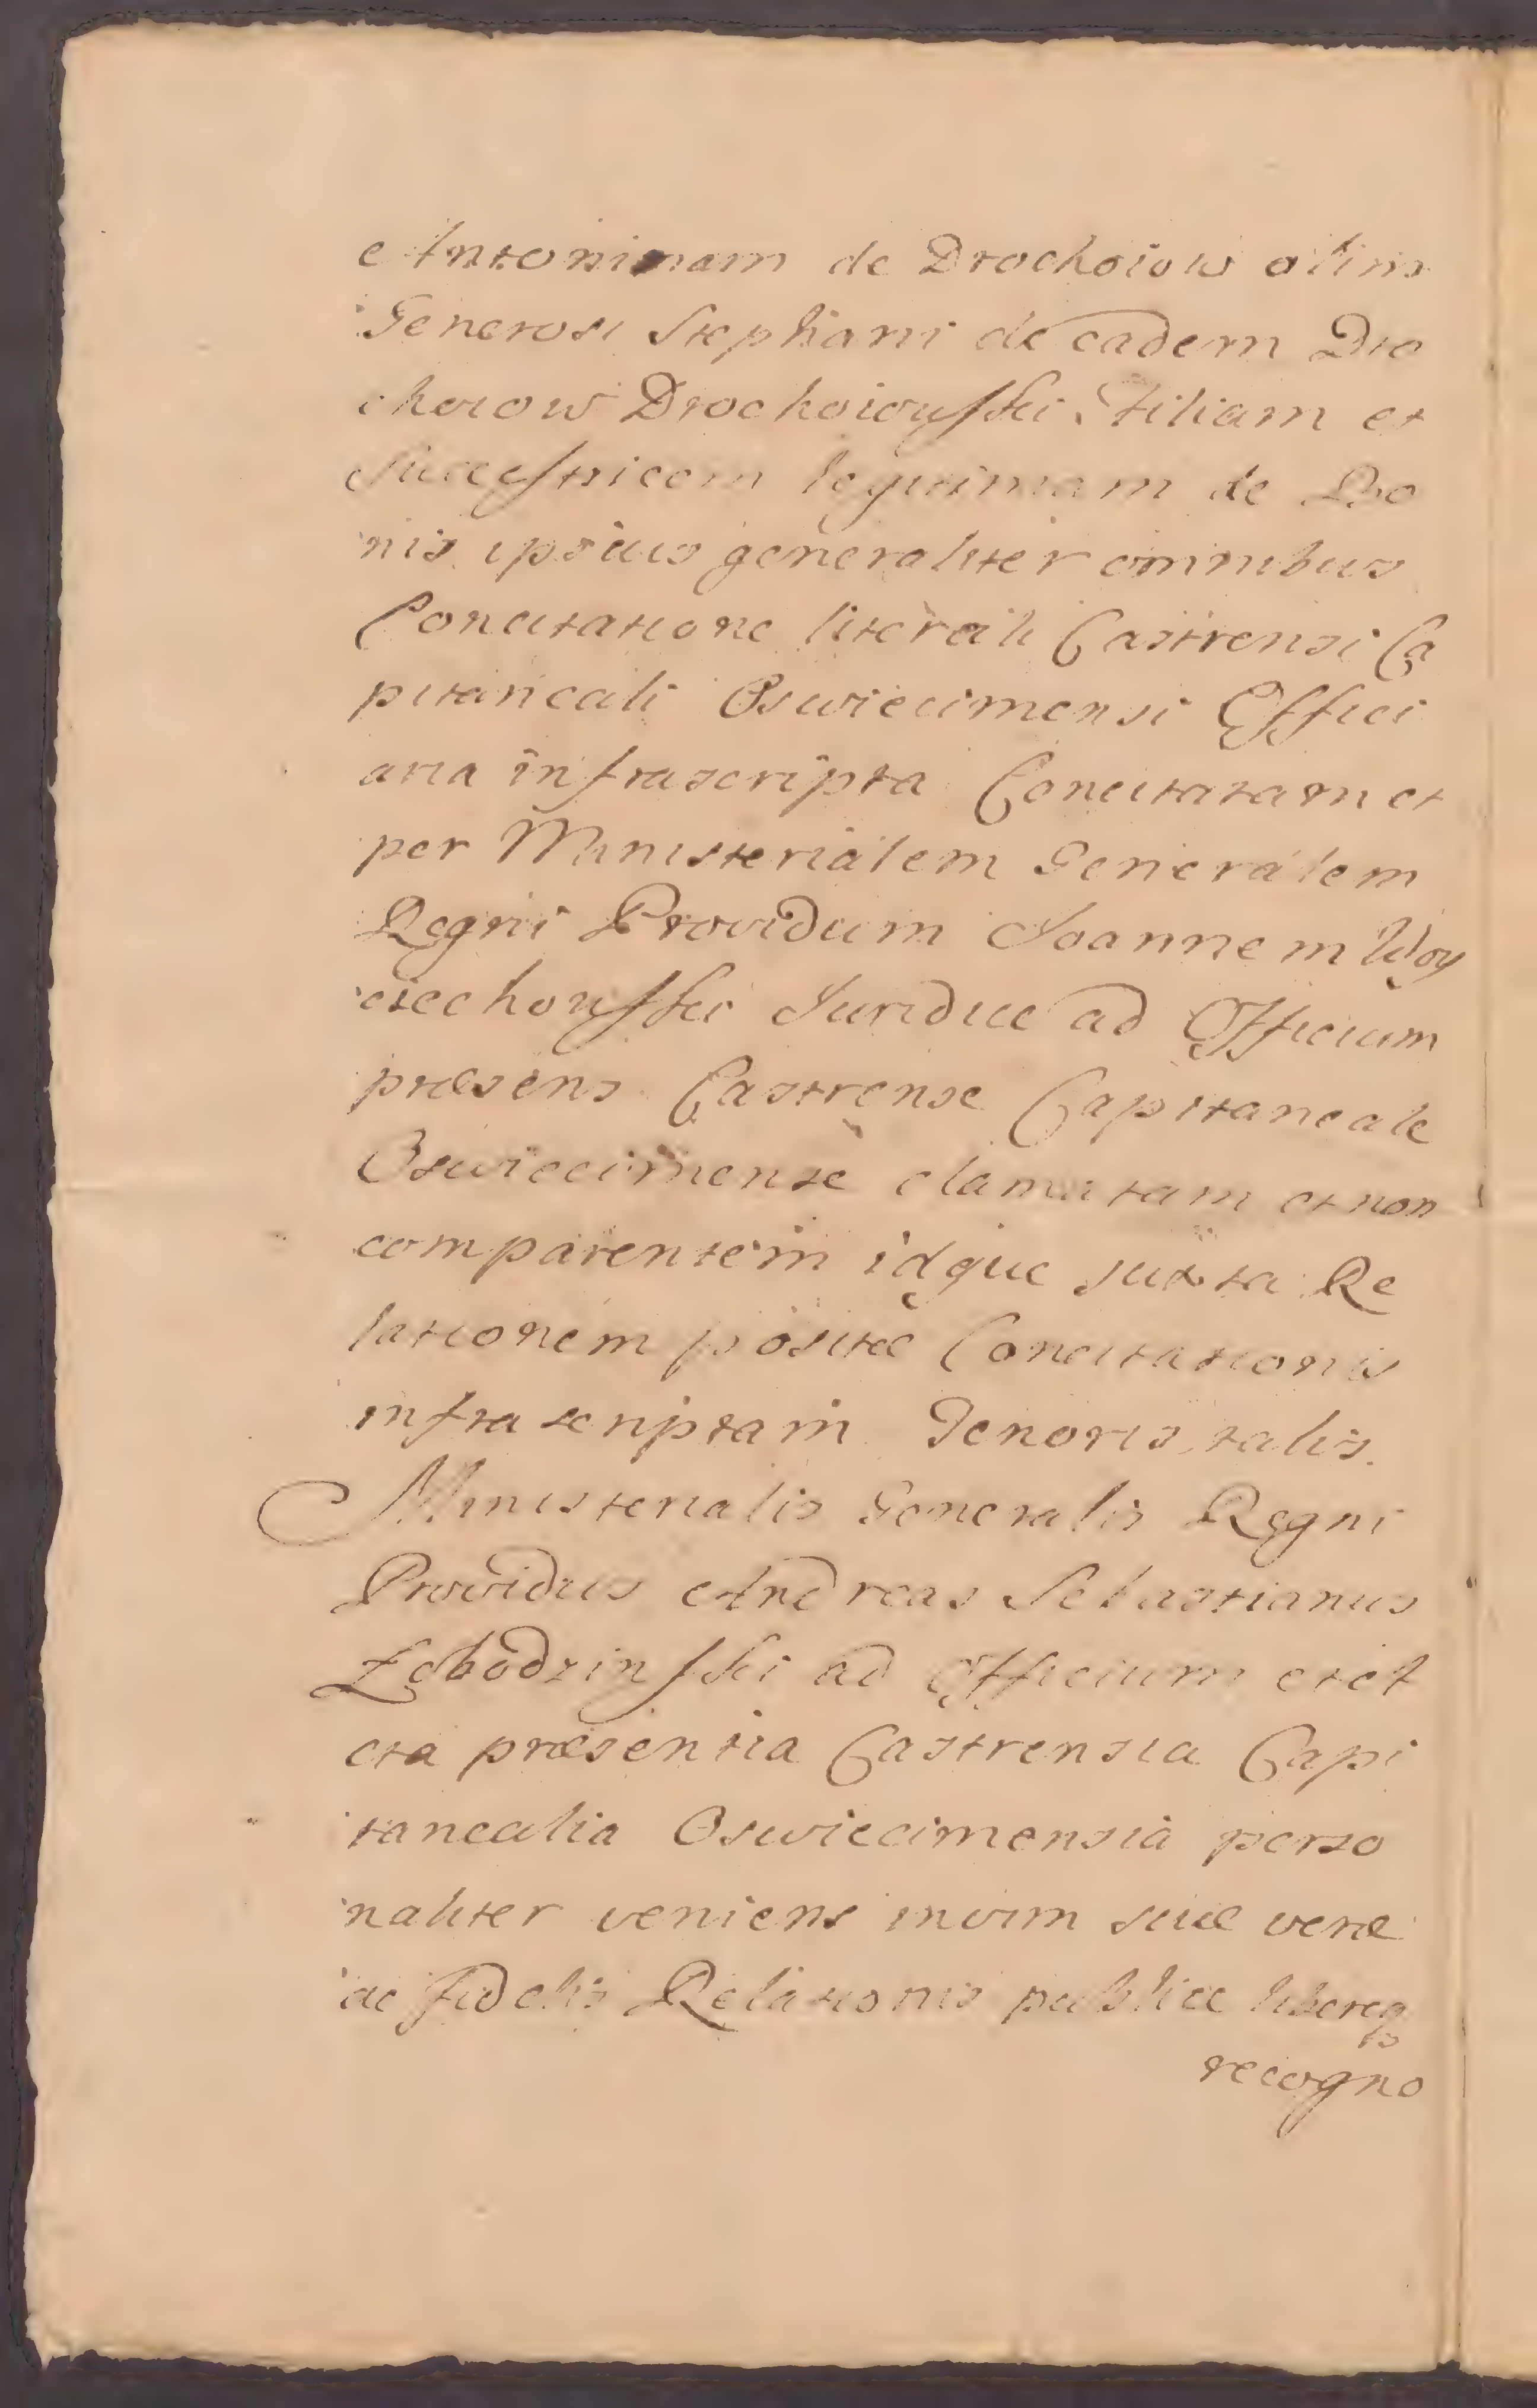 Antoninam de Drochoiow olim
Generosi Stephani de eadem Dro
choiow Drochoiowsski Filiam et
Successricem legitimam de Bo
nis ipsius generaliter omnibus
Concitatione literali Castrensi Ca
pitaneali Oswiecimensi Offici
aria infrascripta Concitatam et
per Ministerialem Generalem
Regni Providum Joannem Woy
ciechowsski Juridice ad Officium
præsens Castrense Capitaneale
Oswiecimense clamatam et non
comparentem idque juxta Re
lationem positæ Concitationis
infrascriptam Tenoris talis.
Ministerialis Generalis Regni
Providus Andreas Sebastianus
Łobodzinsski ad Officium et A
cta præsentia Castrensia Capi
tanealia Oswiecimensia perso
naliter veniens in vim suæ veræ
ac fidelis Relationis publice libereq
recogno